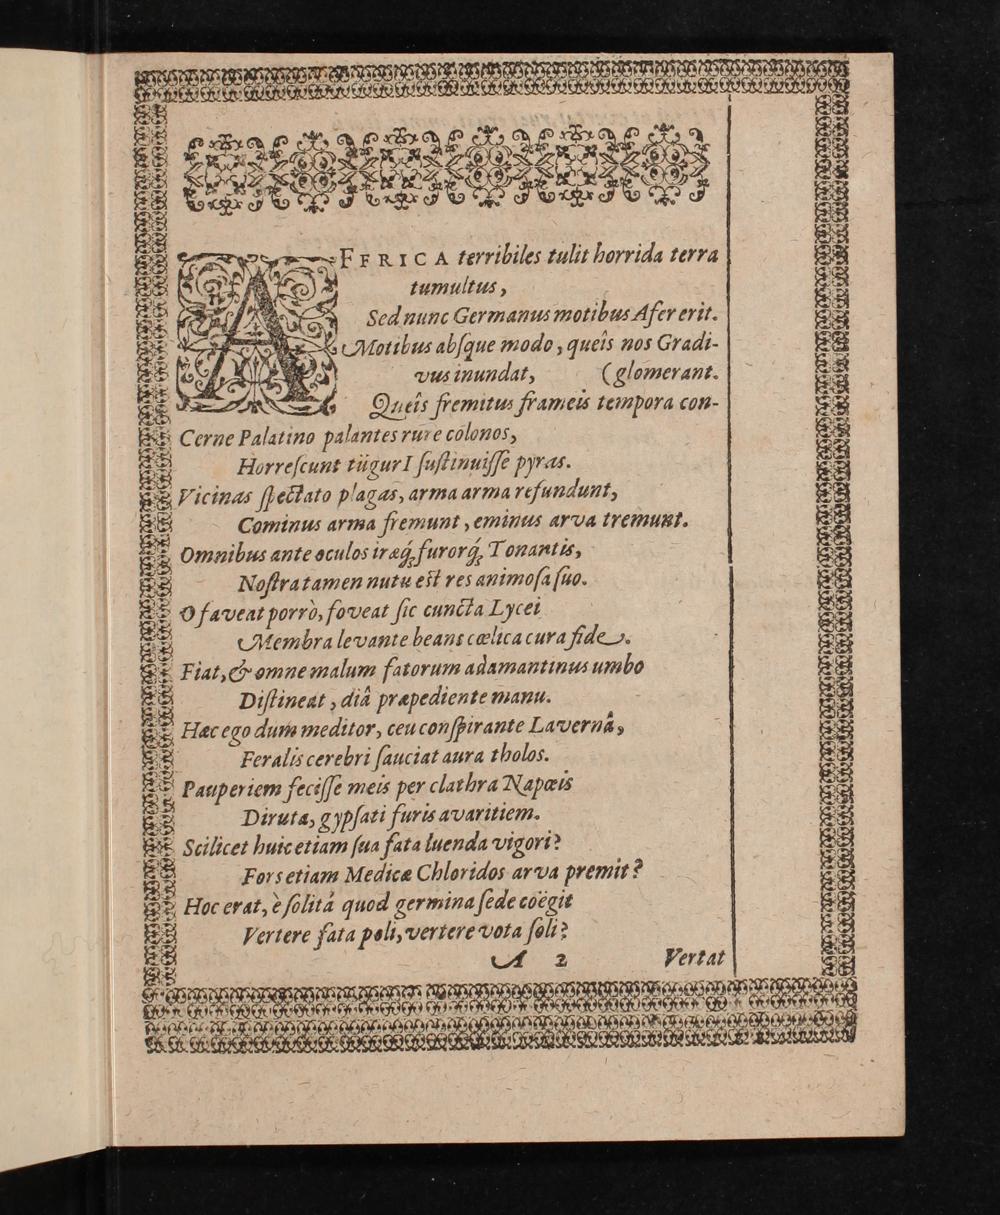 AFFRICA terribiles tulit horrida terra
tumultus,
Sed nunc Germanus motibus Afer erit.
Motibus absque modo, queîs nos Gradi-
vus inundat, (glomerant.
Queîs fremitus frameis tempora con-
Cerne Palatino palantes rure colonos,
Horreſcunt tügurI ſuſtinuiſſe pyras.
Vicinas ſpectato plagas, arma arma refundunt,
Cominus arma fremunt, eminus arva tremunt.
Omnibus ante oculos iræq́; furorq́; Tonantis,
Noſtra tamen nutu eſt res animoſa ſuo.
O faveat porrò, foveat ſic cuncta Lycei
Membra levante beans cœlica cura fide.
Fiat, & omne malum fatorum adamantinus umbo
Diſtineat, diâ præpediente manu.
Hæc ego dum meditor, ceu conſpirante Lavernâ,
Feralis cerebri ſauciat aura tholos.
Pauperiem feciſſe meis per clathra Napœis
Diruta, gypſati furis avaritiem.
Scilicet huic etiam ſua fata luenda vigori?
Fors etiam Medicæ Chloridos arva premit?
Hoc erat, è ſolitâ quod germina ſede coëgit
Vertere fata poli, vertere vota ſoli?
A 2 Vertat